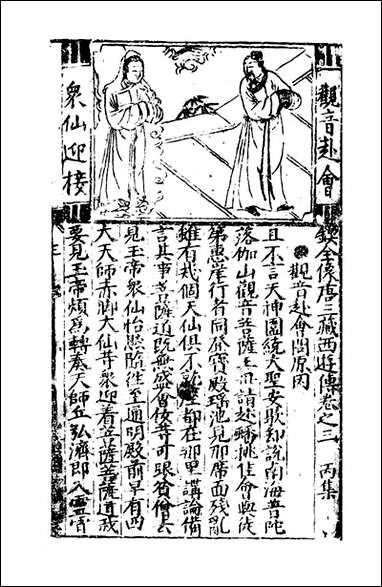 觀音赴會
衆仙迎接
鍥全像唐三藏西遊傳卷之三 丙集
觀音赴會問原因
且不言天神圍繞大聖安歇却說南海普陀
落伽山觀音菩薩王母請赴蟠桃佳會與徒
弟惠岸行者同登寶殿瑤池見那席面殘亂
雖有幾個天仙俱不就座都在那里講論備
言其事菩薩道既無盛會汝等可跟貧僧去
見玉帝衆仙怡然隨往至通明殿前早有四
大天師赤脚大仙等衆迎着菩薩菩薩道我
要見玉帝煩爲轉奏天師丘弘濟即入靈霄